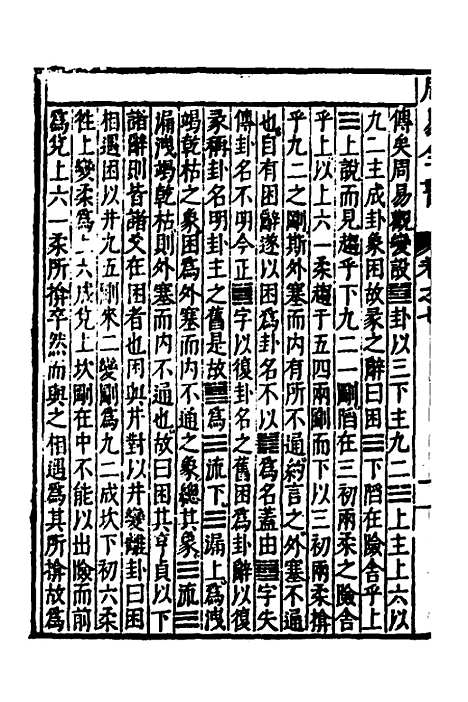 傳矣周易觀變設䷮卦以☵下主九二☱上主上六以
九二主成卦象困故彖之辭曰困☵下陷在險舎乎上
☱上說而見趨乎下九二一剛陷在三初兩柔之險舎
乎上以上六一柔趨于五四兩剛而下以三初兩柔揜
乎九二之剛斯外塞而内有所不通約言之外塞不通
也自有困辭遂以困為卦名不以䷮為名蓋由䷮字失
傳卦名不明今正䷮字以復卦名之舊困為卦辭以復
彖稱卦名明卦主之舊是故䷮為☵流下☱漏上為洩
竭乾枯之象困為外塞而内不通之象總其象☵流☱
漏洩竭乾枯則外塞而内不通也故曰困其亨貞以下
諸辭則皆諸爻在困者也困與井對以井變雜卦曰困
相遇困以井九五剛來二變剛為九二成坎下初六柔
徃上變柔為上六成兌上坎剛在中不能以出險而前
為兌上六一柔所揜卒然而與之相遇為其所揜故為